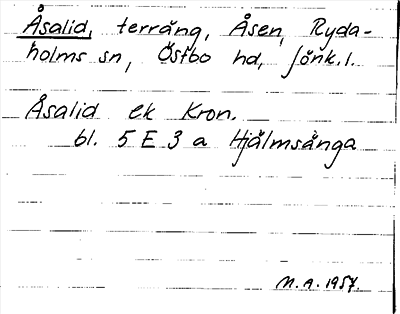 Åsalid, terräng, Åsen, Ryda-
holms sn, Östbo hd, Jönk. l.
Åsalid ek Kron.
bl. 5 E 3 a Hjälmsänga
M.A. 1957.